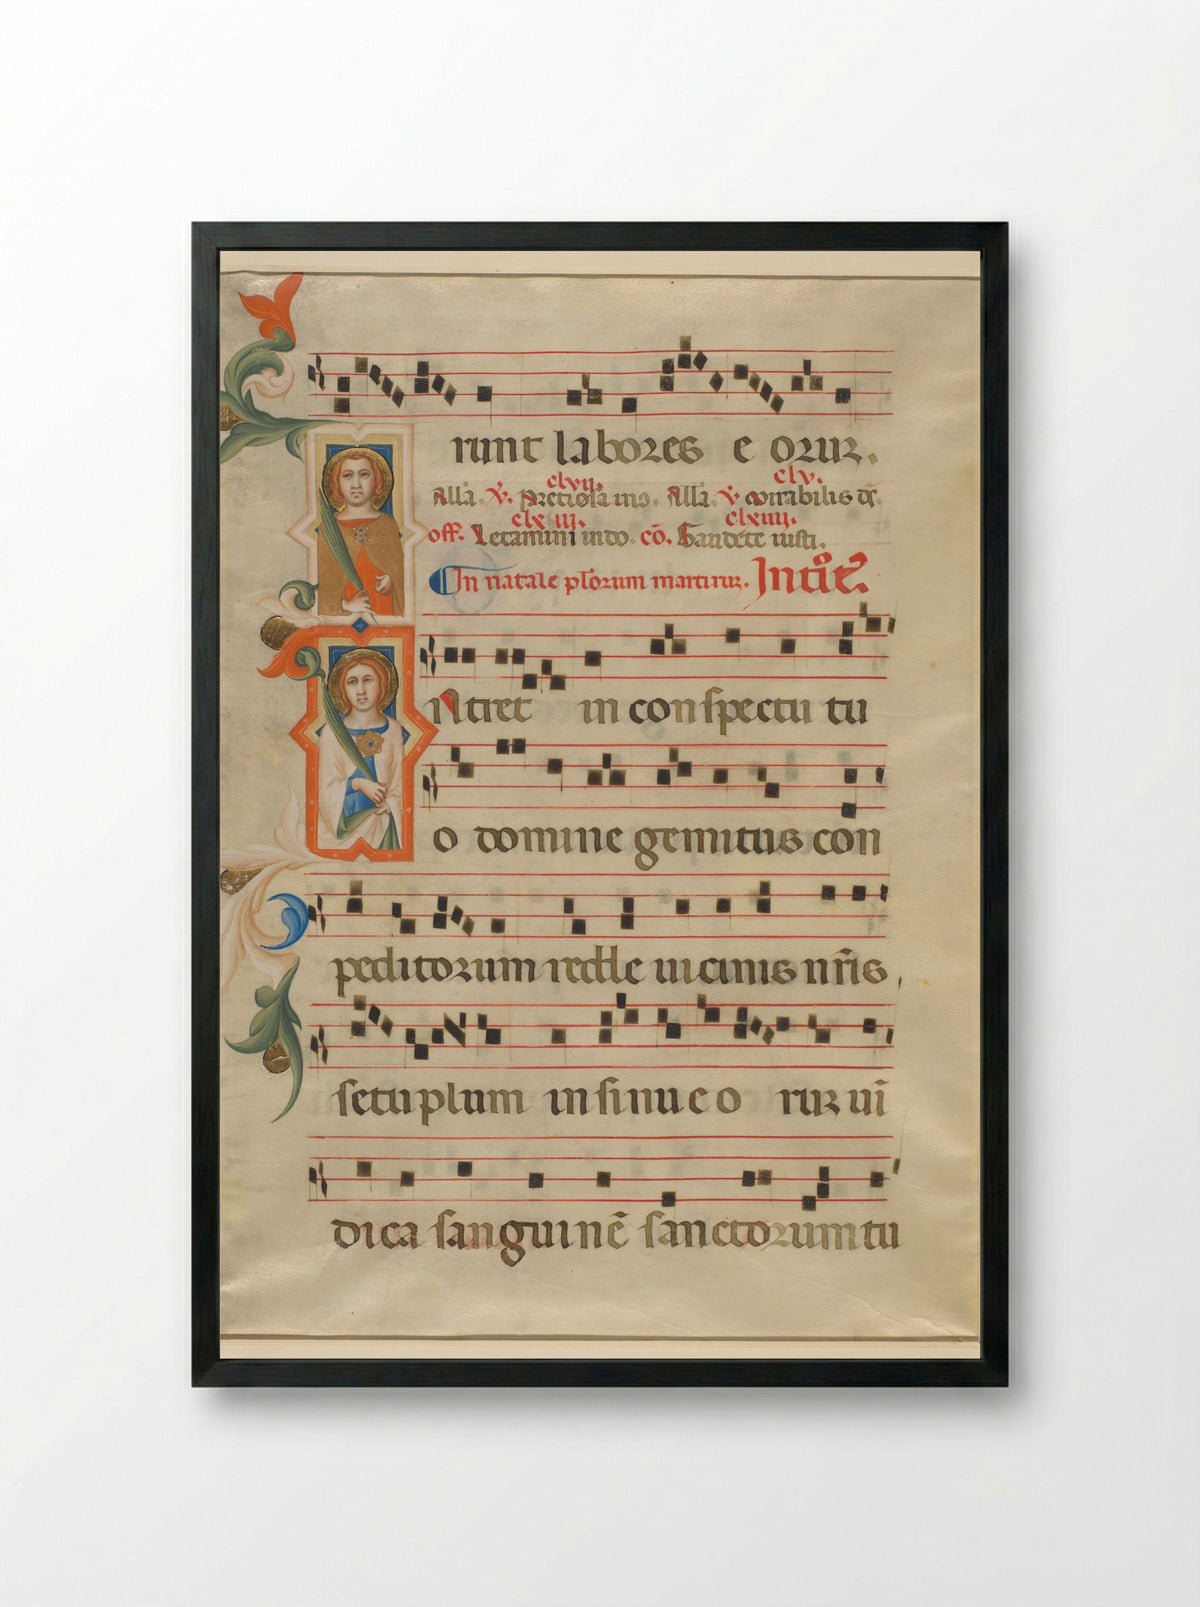 runt labores e oruꝝ.
clvii. clv.
Alla. ℣. Pretiosa in o. Alla. ℣. mirabilis dˢ.
clxiiii. clxiiii.
off. Letamini in do. cō. Gaudete iusti.
In natale plꝛorum martiruꝝ. Introitꝰ.
Ntret in conspectu tu
o domine gemitus con
peditorum redde uicinis nr̄is
setuplum in sinu eo ruꝝ ui
dica sanguinē sanctorum tu